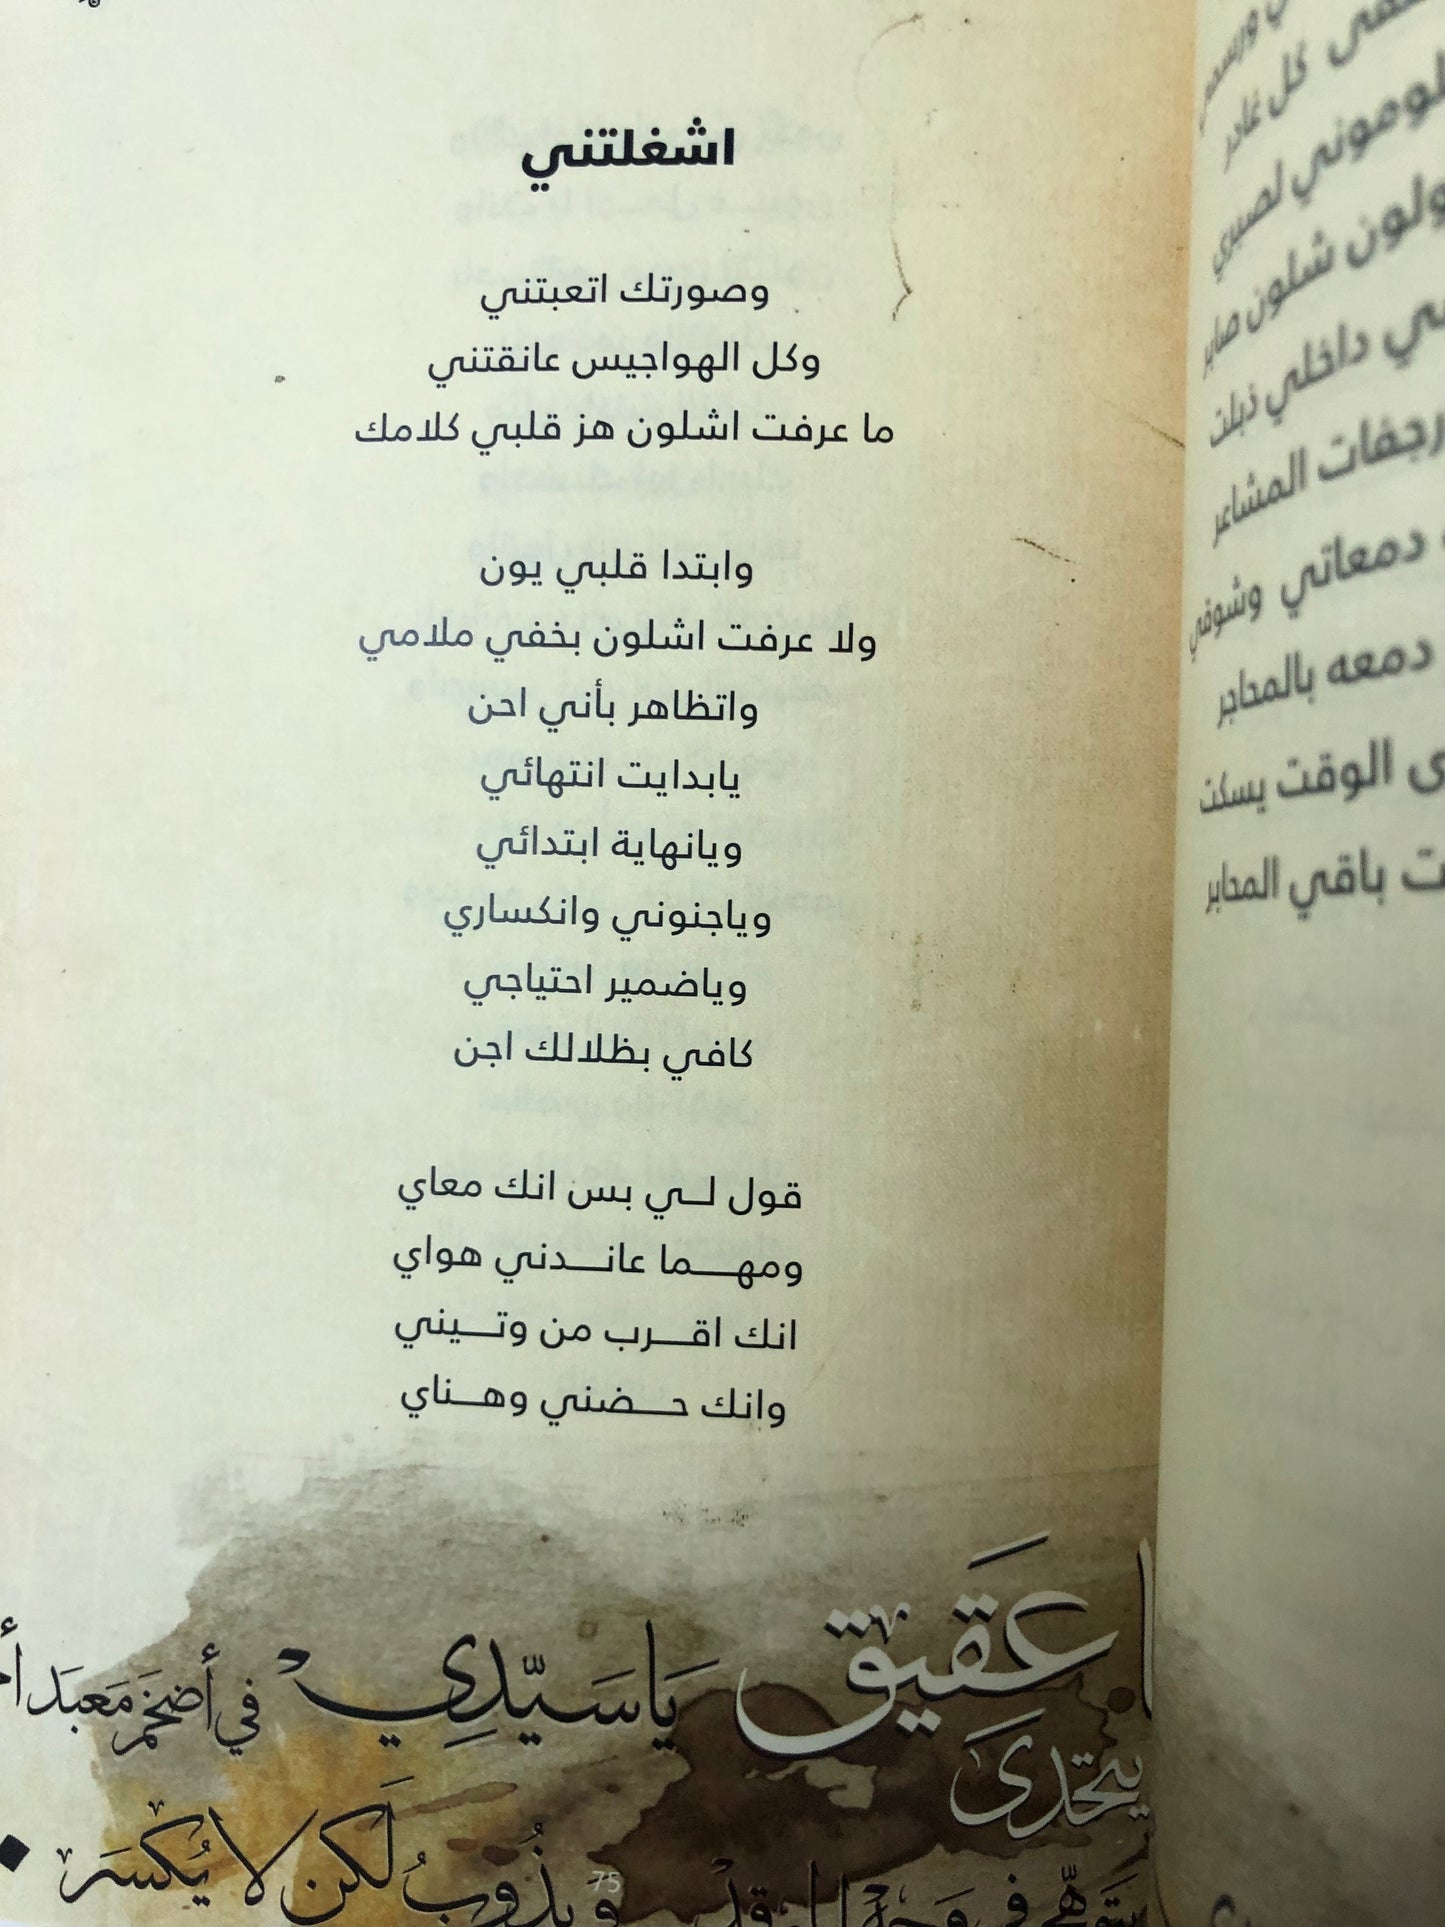 اشغلتني
وصورتك اتعبتني
وكل الهواجيس عانقتني
ما عرفت اشلون هز قلبي كلامك
وابتدا قلبي يون
ولا عرفت اشلون بخفي ملامي
واتظاهر بأني احن
يابدايت انتهائي
ويانهاية ابتدائي
وياجنوني وانكساري
وياضمير احتياجي
كافي بظلالك اجن
قول لــي بس انك معاي
ومهــــما عانــــدني هواي
انك اقـــرب من وتـــيني
وانك حـــضني وهــناي
عَقيق يَا سَيّدِي في أضخَم مَعبَد
يتحدىَ
ويذُوبُ لَكن لا يُكسَر
75
كل غادر
لصبري
ولون شلون صابر
داخلي ذبلت
رجفات المشاعر
دمعاتي وشوقي
دمعه بالمحاجر
الوقت يسكت
باقي المحابر